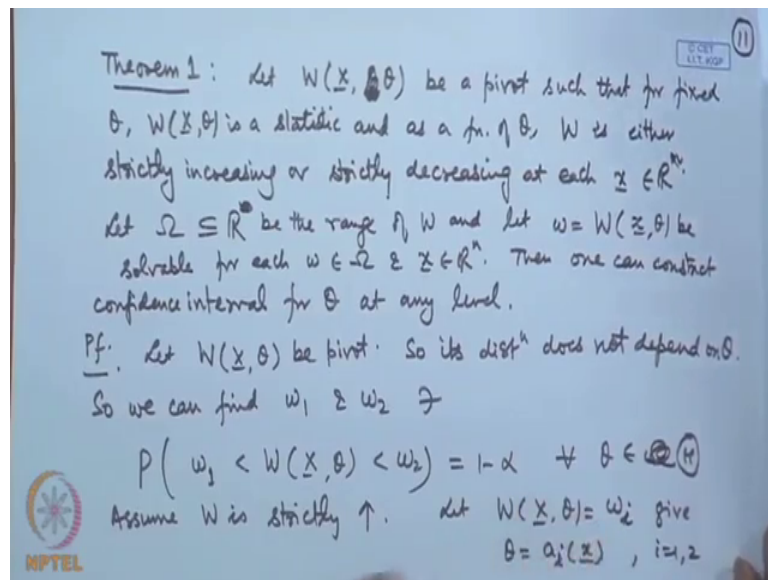 11
© CET
I.I.T. KGP
Theorem 1 : Let W(x, θ) be a pivot such that for fixed
θ, W(X,θ) is a statistic and as a fn. of θ, W is either
strictly increasing or strictly decreasing at each x ∈ ℝⁿ.
Let Ω ⊆ ℝ be the range of W and let ω = W(x,θ) be
solvable for each ω ∈ Ω & x ∈ ℝⁿ. Then one can construct
confidence interval for θ at any level.
Pf. Let W(X,θ) be pivot. So its distⁿ does not depend on θ.
So we can find ω₁ & ω₂ ∋
P( ω₁ < W(X,θ) < ω₂) = 1-α ∀ θ ∈ Ⓗ
Assume W is strictly ↑. Let W(X,θ)= ωᵢ give
θ = aᵢ(x) , i=1,2
NPTEL